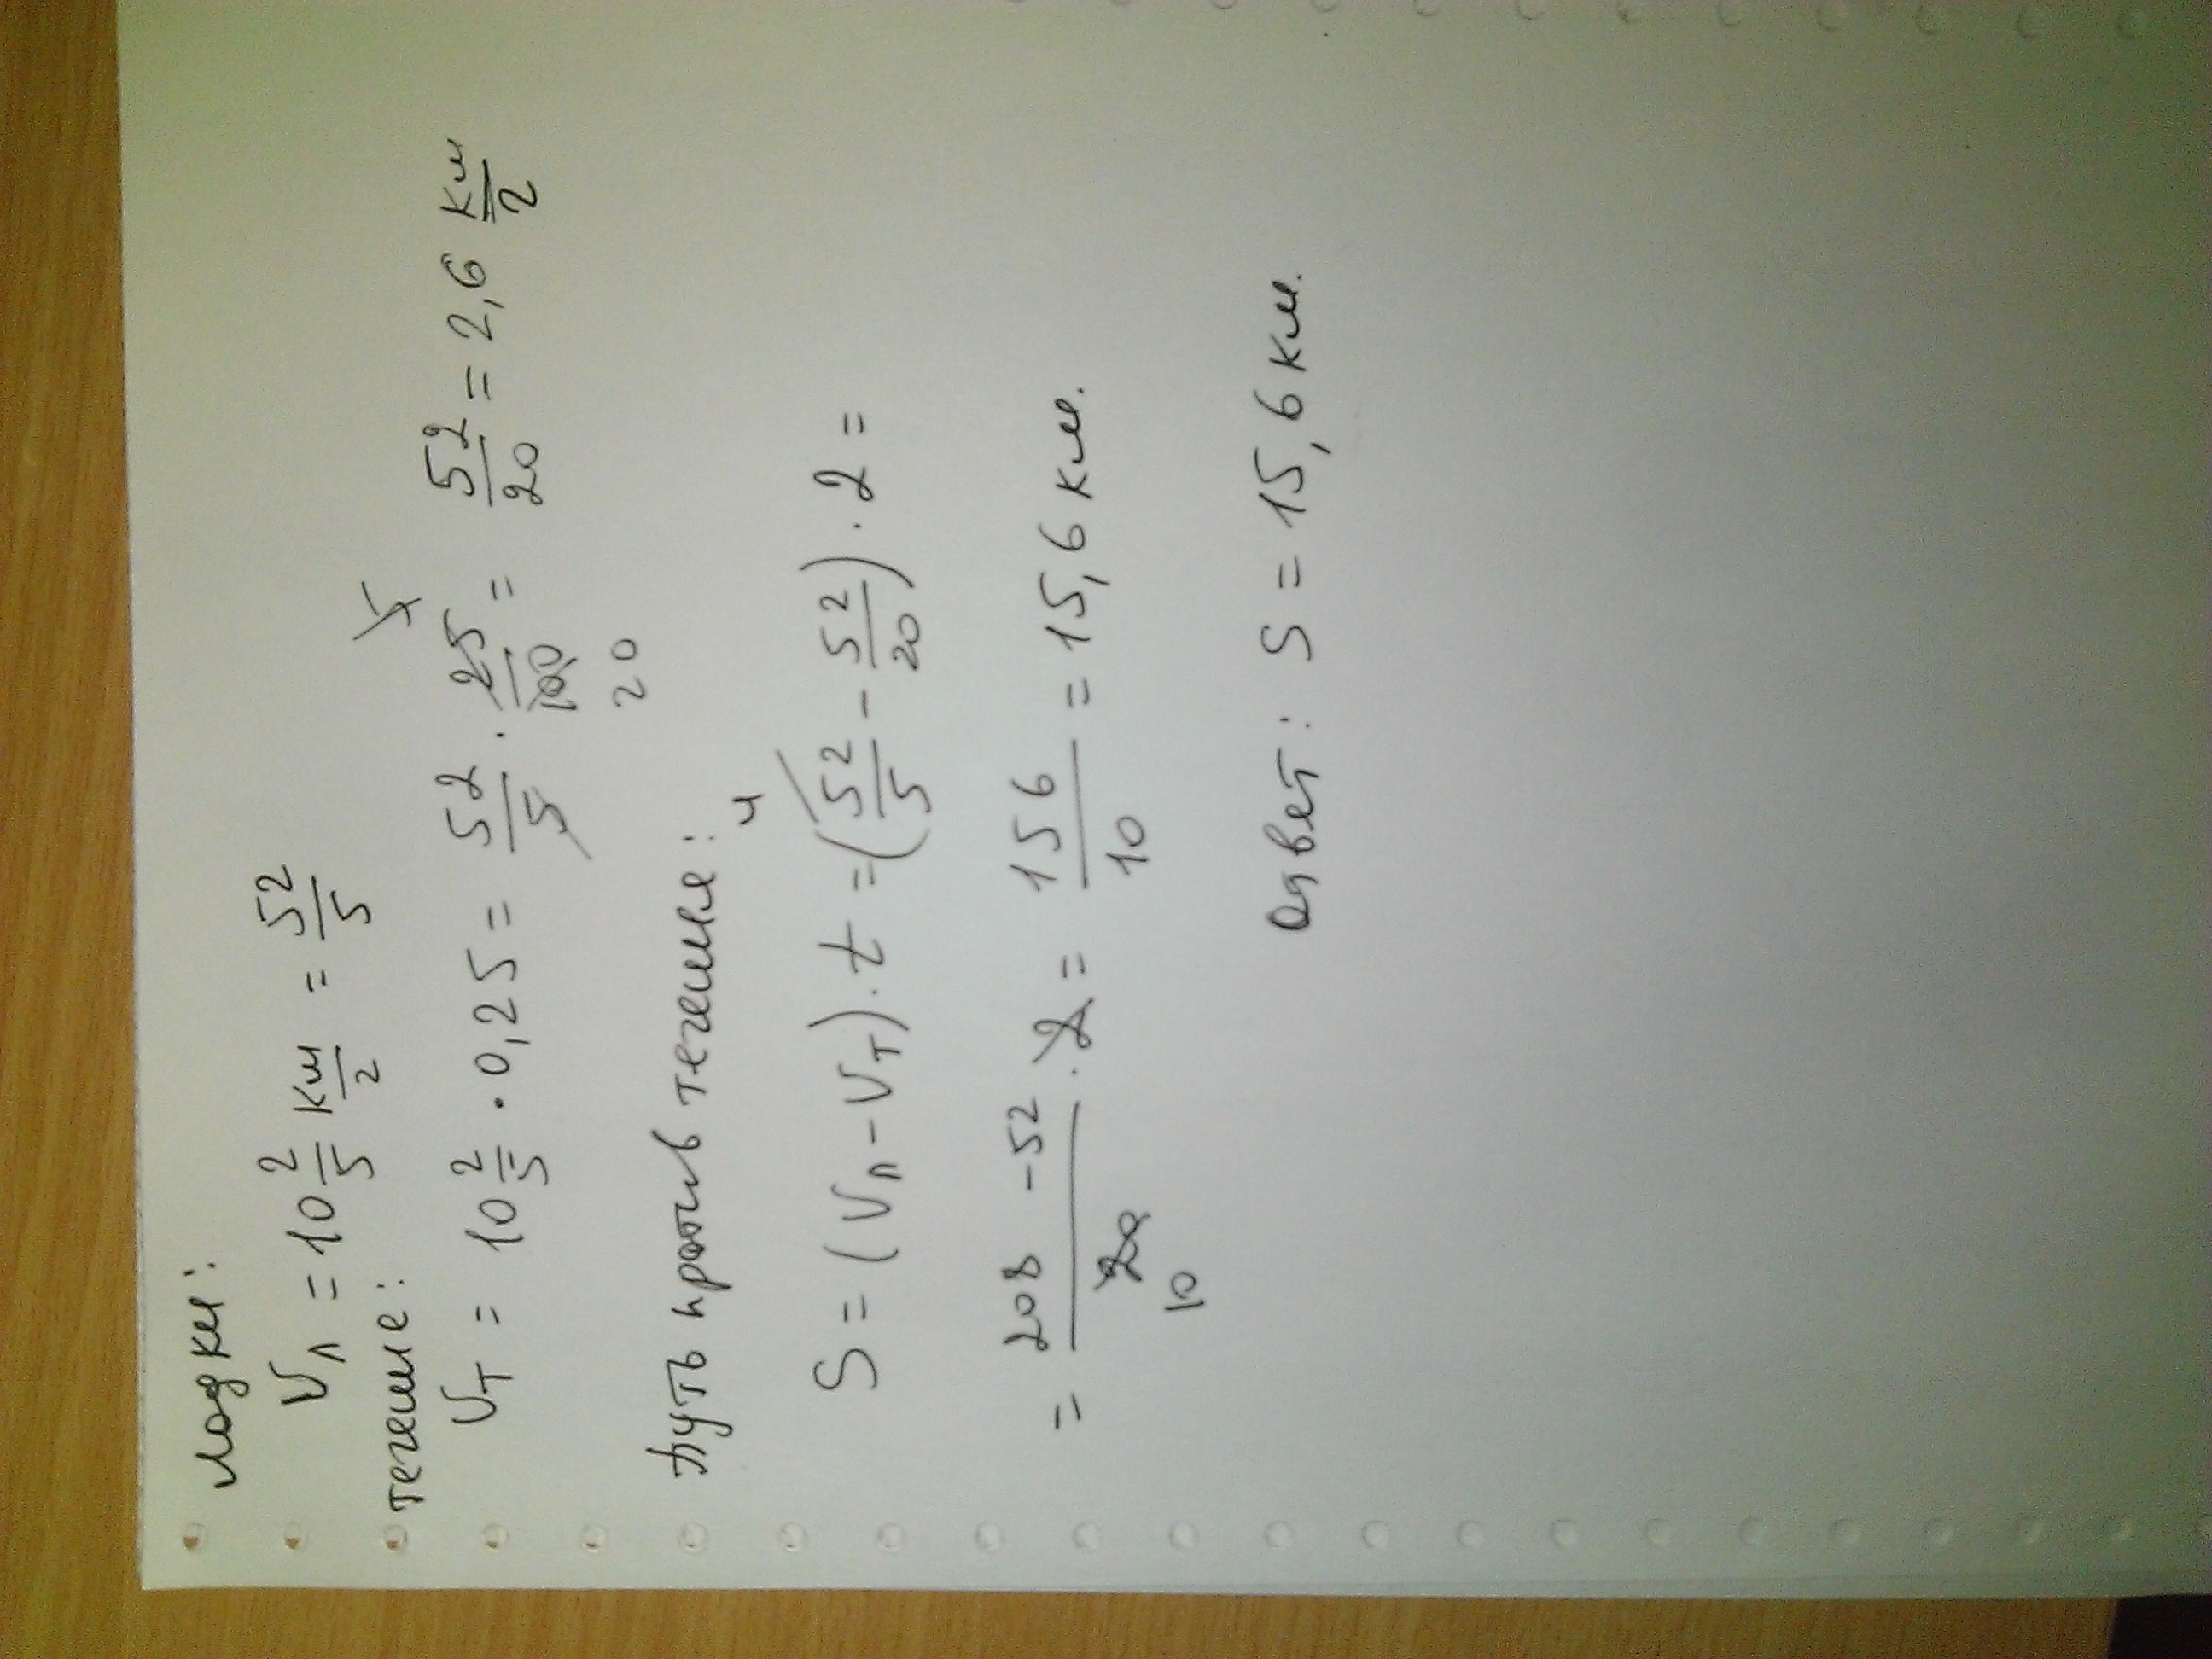 лодки:
Vл = 10 2/5 км/г = 52/5
течение:
Vт = 10 2/5 · 0,25 = 52/5 · 25/100 = 52/20 = 2,6 км/г
20
Путь против течения:
4
S = (Vл - Vт) · t = (52/5 - 52/20) · 2 =
= 208 - 52/20 · 2 = 156/10 = 15,6 км.
10
Ответ: S = 15,6 км.